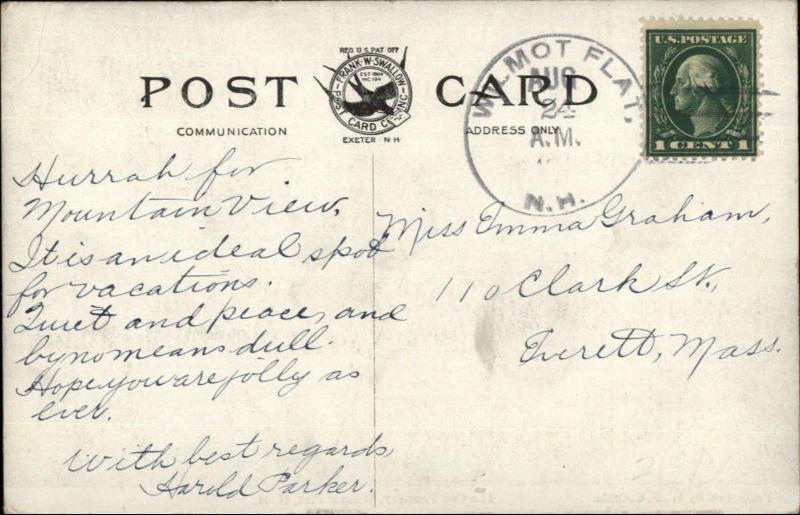 REG U.S. PAT OFF
FRANK·W·SWALLOW
POST CARD CO. INC.
EST 1904
INC 1911
EXETER N·H·
POST CARD
COMMUNICATION
ADDRESS ONLY
WILMOT FLAT.
AUG
24
A.M.
N.H.
U.S. POSTAGE
1 CENT 1
Hurrah for
Mountain View.
It is an ideal spot
for vacations.
Quiet and peace, and
by no means dull.
Hope you are jolly as
ever.
With best regards
Harold Parker.
Miss Emma Graham,
110 Clark St.,
Everett, Mass.